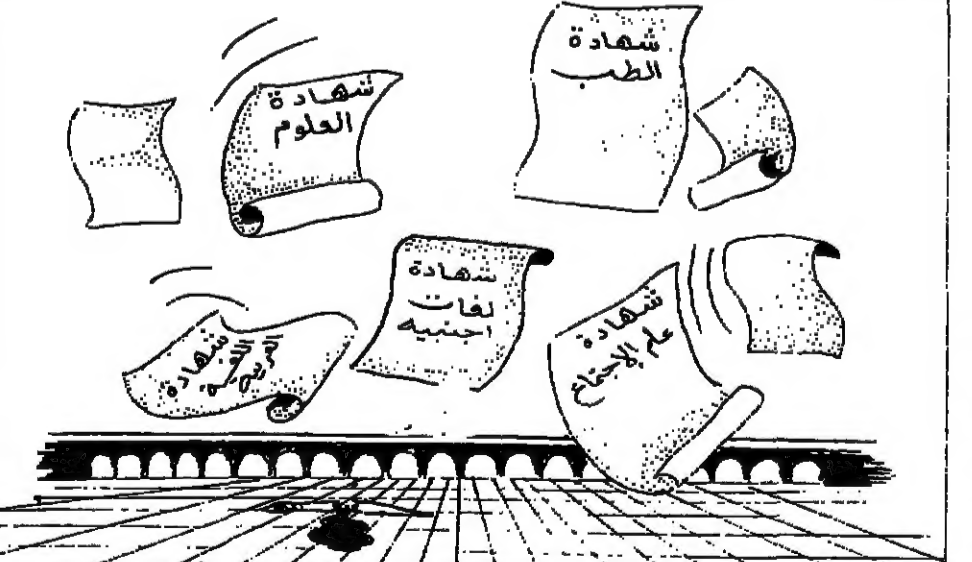 شهادة
الطب
شهادة
العلوم
شهادة
لغات
اجنبيه
شهادة
علم الاجتماع
شهادة
اللغة
العربية